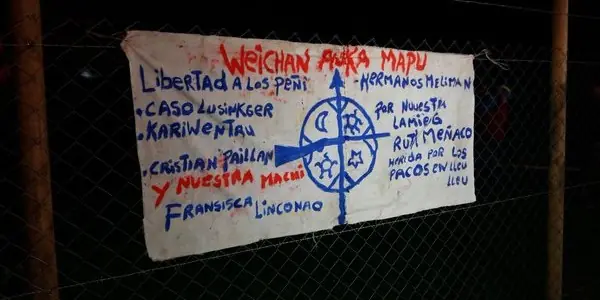 WEICHAN AUKA MAPU
LIBERTAD A LOS PEÑI
•CASO LUSINKGER
•KARIWENTAU
•CRISTIAN PAILLAN
Y NUESTRA MACHI
FRANSISCA LINCONAO
-HERMANOS MELIMAN
POR NUUESTRA
LAMIEG
RUTH MEÑACO
HERIDA POR LOS
PACOS EN LLEU
LLEU